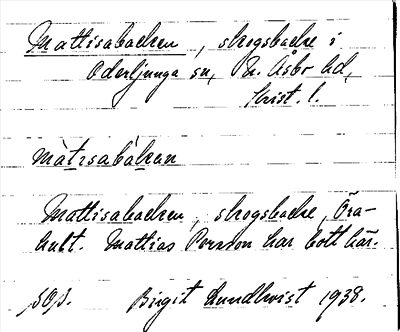 Mattisabacken, skogsbacke i
Oderljunga sn, N. Åsbo hd,
Krist. l.
màtısabàkan
Mattisabacken, skogsbacke, Öra-
hult. Mathias Persson har bott här.
Birgit Lundkvist 1938.